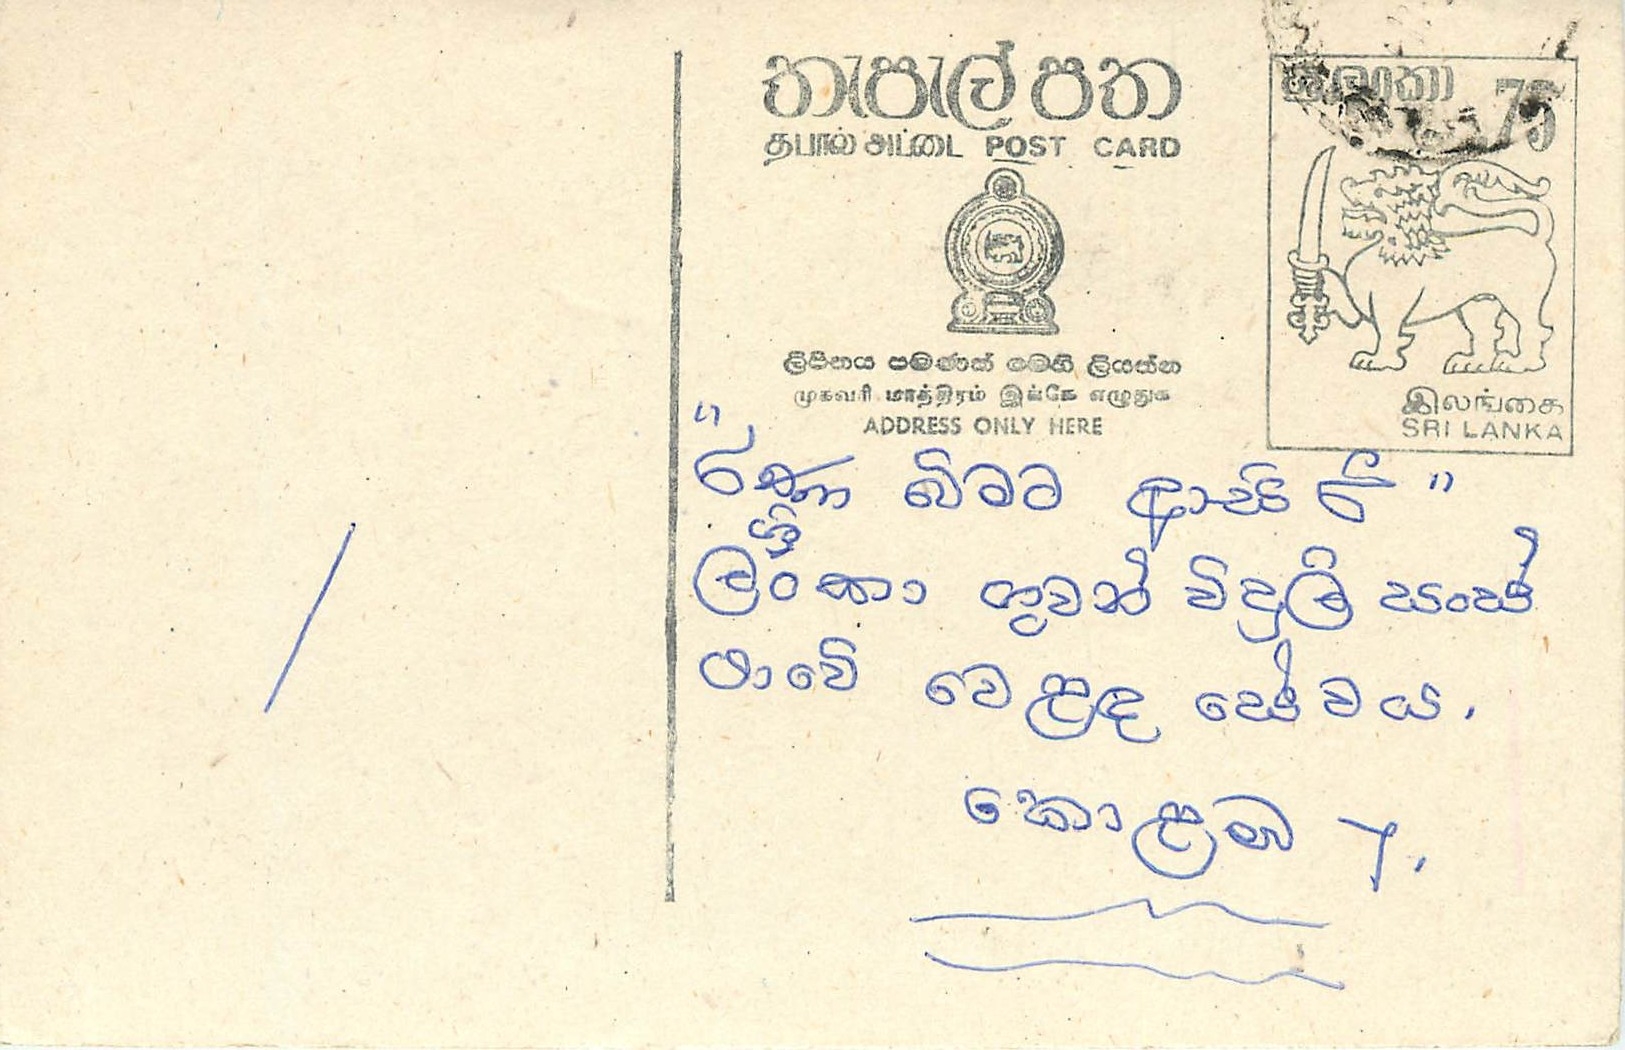 තැපැල් පත
தபால் அட்டை POST CARD
ශ්‍රී ලංකා 75
ලිපිනය පමණක් මෙහි ලියන්න
முகவரி மாத்திரம் இங்கே எழுதுக
ADDRESS ONLY HERE
இலங்கை
SRI LANKA
" රණ බිමට ආසිරි "
ශ්‍රී
ලංකා ගුවන් විදුලි සංස්
ථාවේ වෙළඳ සේවය.
කොළඹ 7.